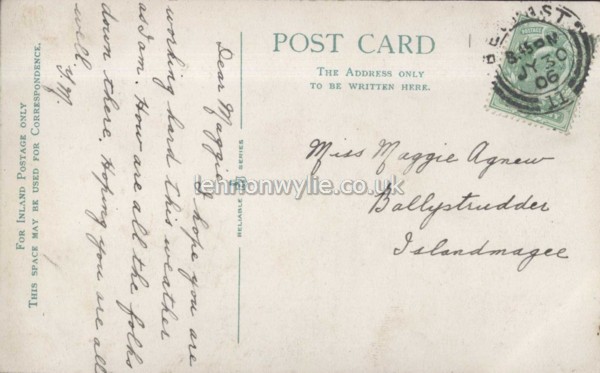 FOR INLAND POSTAGE ONLY
THIS SPACE MAY BE USED FOR CORRESPONDENCE.
Dear Maggie I hope you are
working hard this weather
as I am. How are all the folks
down there. Hoping you are all
well
RELIABLE SERIES
POST CARD
THE ADDRESS ONLY
TO BE WRITTEN HERE.
BELFAST
8.45 PM
JY 30
06
11
Miss Maggie Agnew
Ballystrudder
Islandmagee
lennonwylie.co.uk